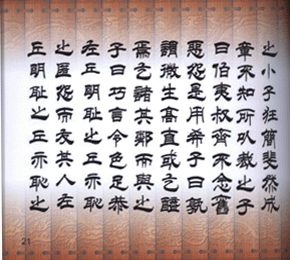 之小子狂簡斐然成
章不知所以裁之子
曰伯夷叔齊不念舊
惡怨是用希子曰孰
謂微生高直或乞醯
焉乞諸其鄰而與之
子曰巧言令色足恭
左丘明恥之丘亦恥
之匿怨而友其人左
丘明恥之丘亦恥之
21